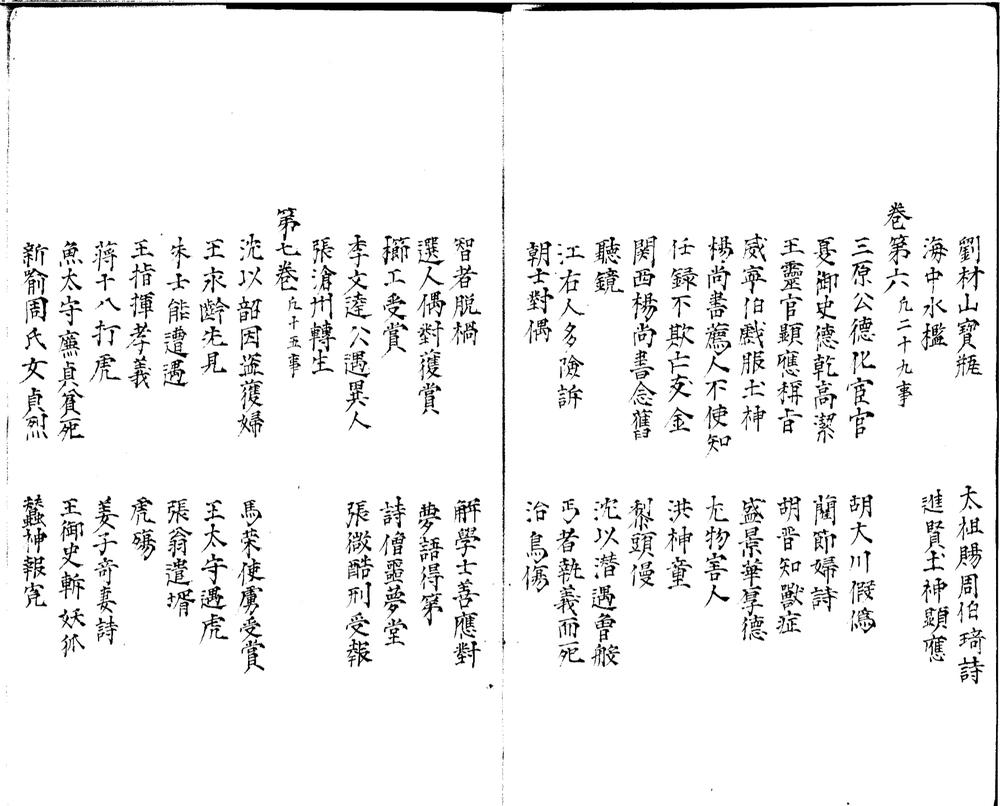 劉材山寶瓶　太祖賜周伯琦詩
海中水檻　進賢土神顯應
卷第六凡二十九事
三原公德化宦官　胡大川假僞
夏御史德乾高潔　蘭節婦詩
王靈官顯應稱旨　胡晋知獸症
威寧伯戲服土神　盛景華厚德
楊尚書薦人不使知　尤物害人
任録不欺亡友金　洪神童
関西楊尚書念舊　梨頭僈
聽鏡　沈以潜遇魯般
江右人多險訴　丐者執義而死
朝士對偶　冶鳥傷
智者脱禍　解學士善應對
選人偶對獲賞　夢語得第
櫛工受賞　詩僧噩夢堂
李文達公遇異人　張徽酷刑受報
張滄州轉生
第七卷凡十五事
沈以韶因盗獲婦　馬荣使虜受賞
王永齡先見　王太守遇虎
朱士能遭遇　張翁遣壻
王指揮孝義　虎殤
蔣十八打虎　姜子奇妻詩
魚太守㢘貞貧死　王御史斬妖狐
新喻周氏女貞烈　蠶神報寃